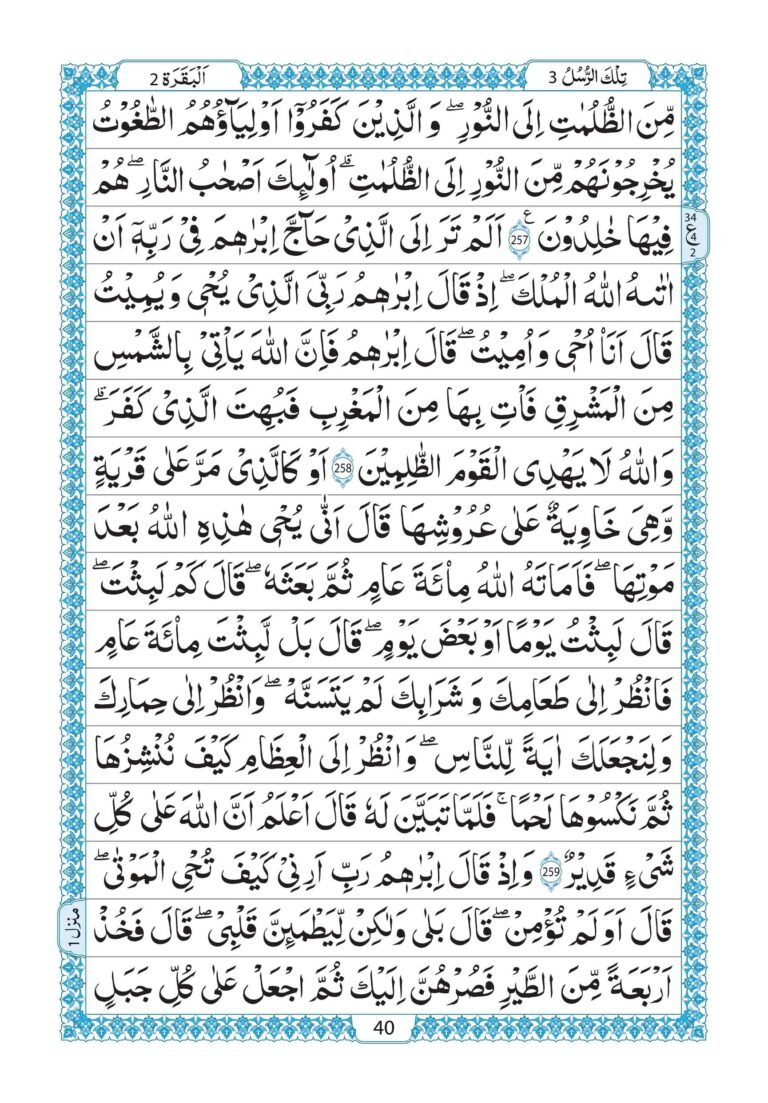 تِلْكَ الرُّسُلُ 3
اَلْبَقَرَة 2
مِّنَ الظُّلُمٰتِ اِلَى النُّوْرِ ۖ وَ الَّذِيْنَ كَفَرُوْۤا اَوْلِيَآؤُهُمُ الطَّاغُوْتُ
يُخْرِجُوْنَهُمْ مِّنَ النُّوْرِ اِلَى الظُّلُمٰتِ ۗ اُولٰٓئِكَ اَصْحٰبُ النَّارِ ۖ هُمْ
فِيْهَا خٰلِدُوْنَ ࣖ 257 اَلَمْ تَرَ اِلَى الَّذِيْ حَآجَّ اِبْرٰهٖمَ فِيْ رَبِّهٖۤ اَنْ
34 ع 4 2
اٰتٰىهُ اللّٰهُ الْمُلْكَ ۖ اِذْ قَالَ اِبْرٰهٖمُ رَبِّيَ الَّذِيْ يُحْيٖ وَ يُمِيْتُ
قَالَ اَنَا۠ اُحْيٖ وَ اُمِيْتُ ۖ قَالَ اِبْرٰهٖمُ فَاِنَّ اللّٰهَ يَاْتِيْ بِالشَّمْسِ
مِنَ الْمَشْرِقِ فَاْتِ بِهَا مِنَ الْمَغْرِبِ فَبُهِتَ الَّذِيْ كَفَرَ ۗ
وَ اللّٰهُ لَا يَهْدِى الْقَوْمَ الظّٰلِمِيْنَ 258 اَوْ كَالَّذِيْ مَرَّ عَلٰى قَرْيَةٍ
وَّهِيَ خَاوِيَةٌ عَلٰى عُرُوْشِهَا قَالَ اَنّٰى يُحْيٖ هٰذِهِ اللّٰهُ بَعْدَ
مَوْتِهَا ۖ فَاَمَاتَهُ اللّٰهُ مِائَةَ عَامٍ ثُمَّ بَعَثَهٗ ۖ قَالَ كَمْ لَبِثْتَ ۖ
قَالَ لَبِثْتُ يَوْمًا اَوْ بَعْضَ يَوْمٍ ۖ قَالَ بَلْ لَّبِثْتَ مِائَةَ عَامٍ
فَانْظُرْ اِلٰى طَعَامِكَ وَ شَرَابِكَ لَمْ يَتَسَنَّهْ ۖ وَانْظُرْ اِلٰى حِمَارِكَ
وَ لِنَجْعَلَكَ اٰيَةً لِّلنَّاسِ ۖ وَانْظُرْ اِلَى الْعِظَامِ كَيْفَ نُنْشِزُهَا
ثُمَّ نَكْسُوْهَا لَحْمًا ۚ فَلَمَّا تَبَيَّنَ لَهٗ قَالَ اَعْلَمُ اَنَّ اللّٰهَ عَلٰى كُلِّ
شَيْءٍ قَدِيْرٌ 259 وَ اِذْ قَالَ اِبْرٰهٖمُ رَبِّ اَرِنِيْ كَيْفَ تُحْيِ الْمَوْتٰى ۖ
قَالَ اَوَ لَمْ تُؤْمِنْ ۖ قَالَ بَلٰى وَ لٰكِنْ لِّيَطْمَئِنَّ قَلْبِيْ ۖ قَالَ فَخُذْ
منزل 1
اَرْبَعَةً مِّنَ الطَّيْرِ فَصُرْهُنَّ اِلَيْكَ ثُمَّ اجْعَلْ عَلٰى كُلِّ جَبَلٍ
40